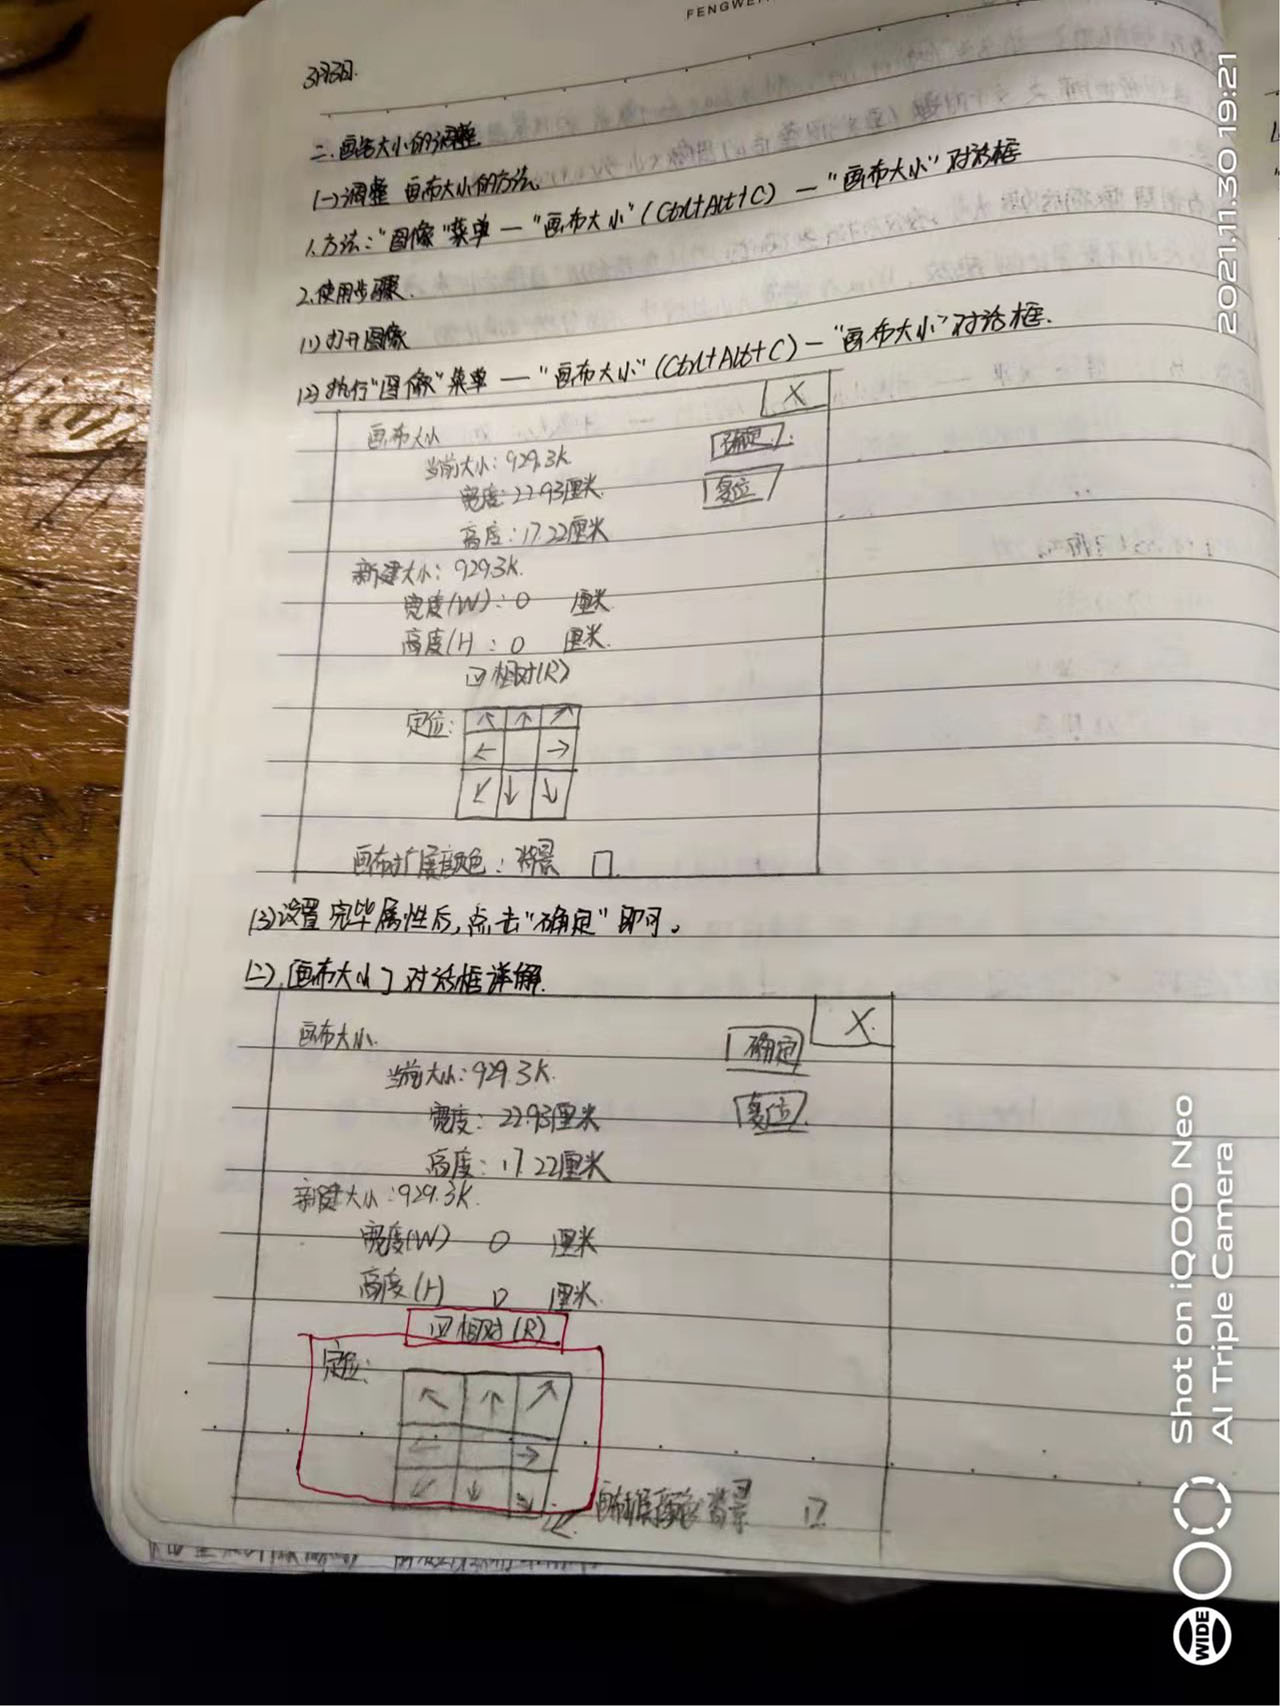 FENGWE
3月3日.
二.画布大小的调整
(一)调整 画布大小的方法.
1.方法:"图像"菜单 — "画布大小"(Ctrl+Alt+C) — "画布大小"对话框
2.使用步骤.
(1)打开图像
(2)执行"图像"菜单 — "画布大小"(Ctrl+Alt+C) — "画布大小"对话框.
X
画布大小
确定
当前大小:929.3K
宽度:22.93厘米
复位
高度:17.22厘米
新建大小:929.3K.
宽度(W):0 厘米.
高度(H:0 厘米.
☑相对(R)
定位:
↖ ↑ ↗
← →
↙ ↓ ↓
画布扩展颜色:背景 □
(3)设置完毕属性后,点击"确定"即可。
(二).[画布大小]对话框详解.
X
画布大小.
确定
当前大小:929.3K.
宽度:22.93厘米
复位
高度:17.22厘米
新建大小:929.3K.
宽度(W) 0 厘米
高度(H) 0 厘米.
☑相对(R)
定位:
↖ ↑ ↗
← →
↙ ↓ ↘
2021.11.30 19:21
Shot on iQOO Neo
AI Triple Camera
WIDE